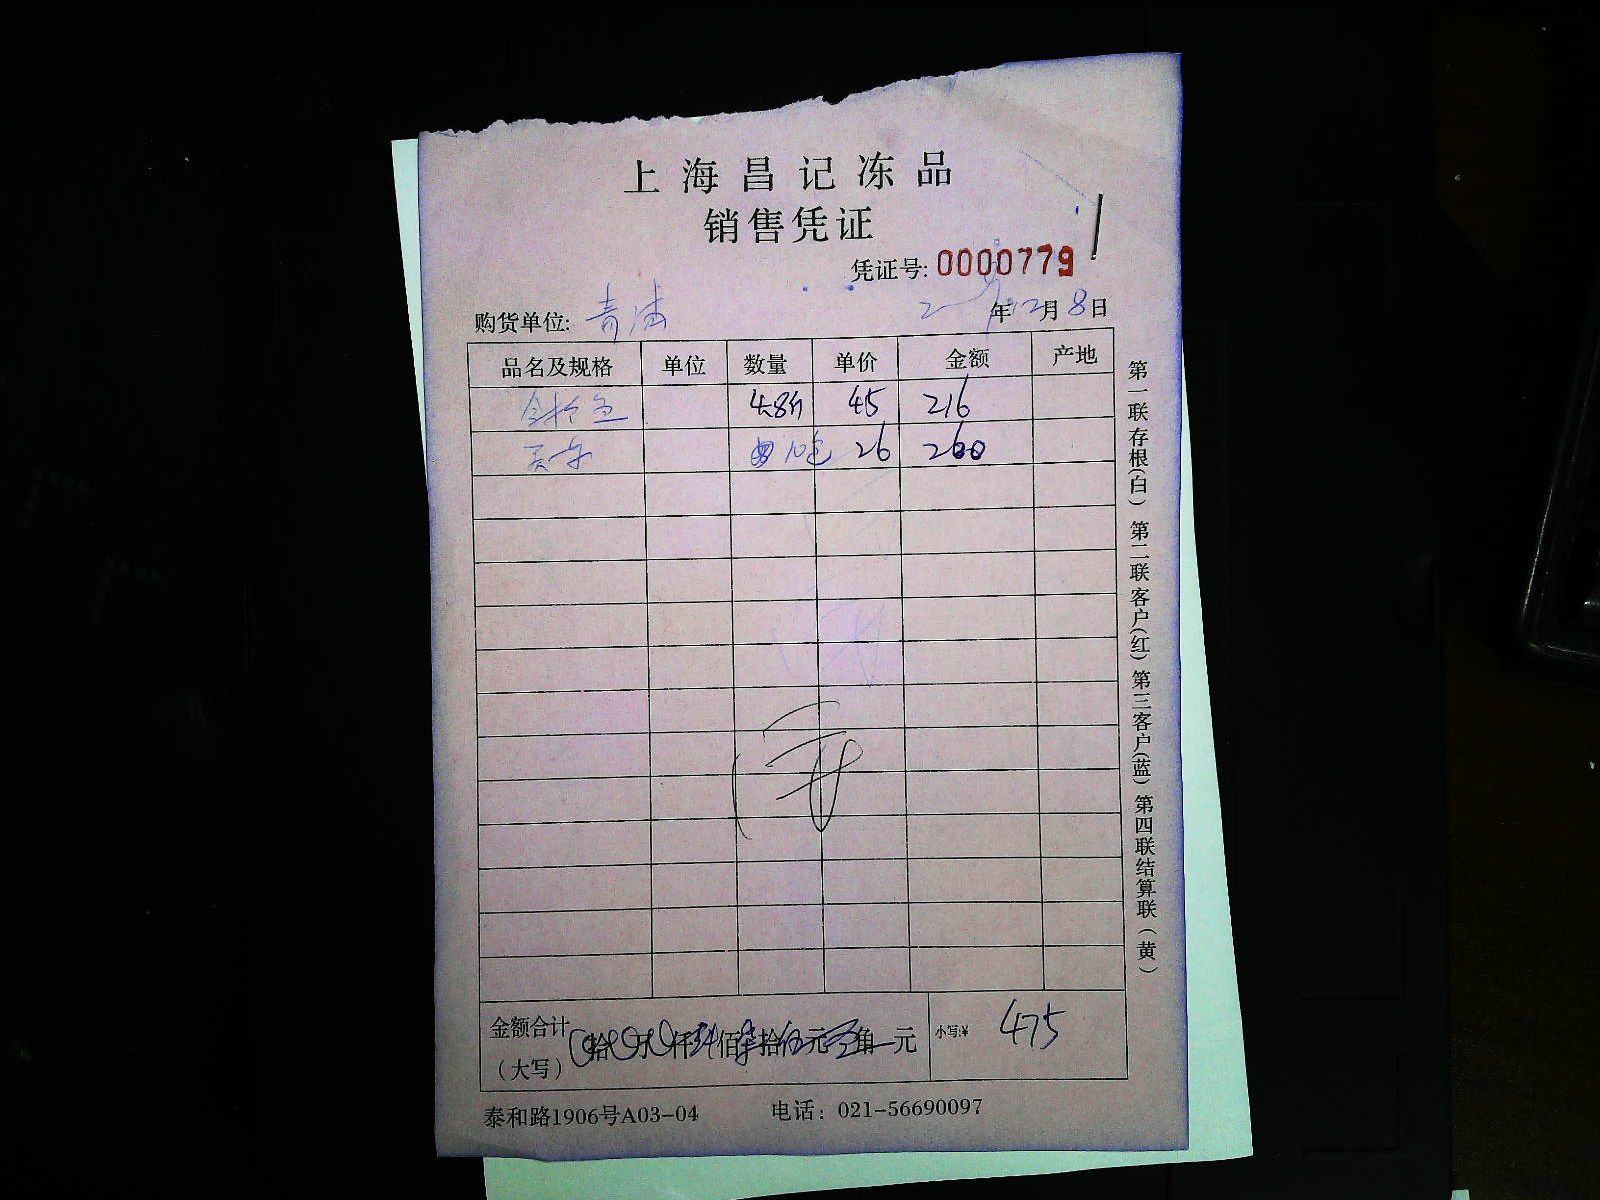 上海昌记冻品
销售凭证
凭证号: 0000779
购货单位: 青浦 年12月8日
品名及规格 单位 数量 单价 金额 产地
4.8斤 45 216
10包 26 260
金额合计(大写) 拾 万 仟 佰 拾 元 角 元 小写:¥ 475
泰和路1906号A03-04 电话: 021-56690097
第一联存根(白) 第二联客户(红) 第三客户(蓝) 第四联结算联(黄)